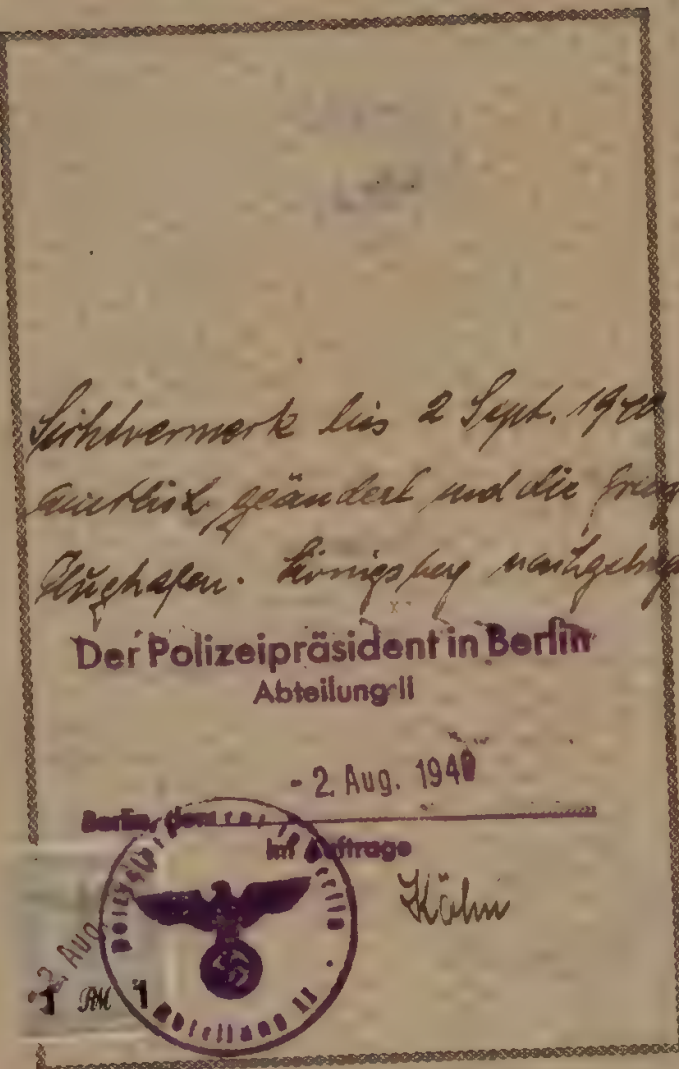 Sichtvermerk bis 2 Sept. 1940
amtlich geändert und die
Flughafen. Königsberg
Der Polizeipräsident in Berlin
Abteilung II
- 2. Aug. 1940
Berlin, den
Im Auftrage
Köhn
Polizeipräsident in Berlin
- 2. Aug.
1 RM 1
Abteilung II